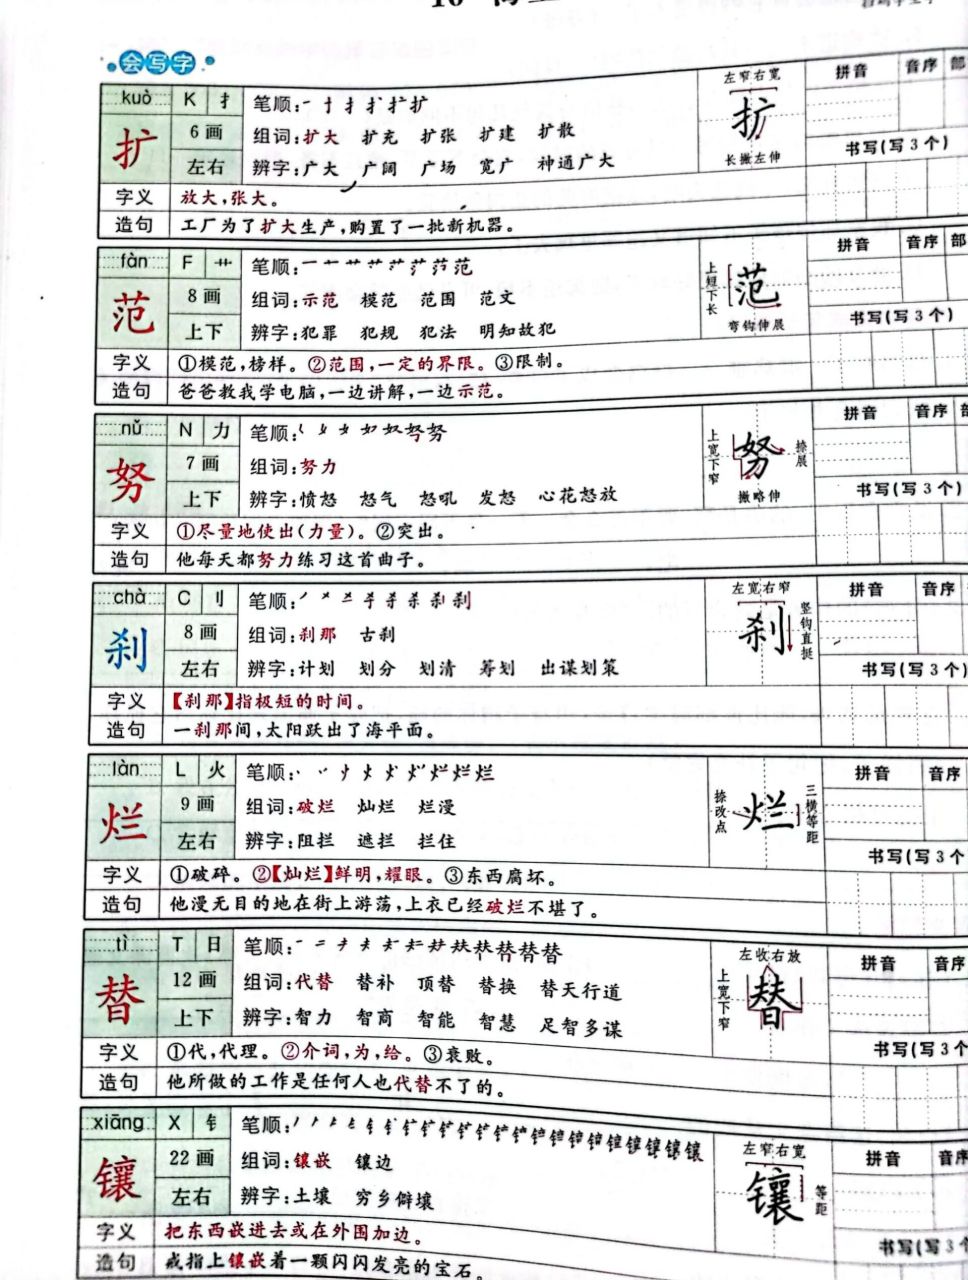 会写字
kuò K 扌 笔顺: 拼音 音序 部
扩 6画 组词:扩大 扩充 扩张 扩建 扩散 左窄右宽 扩 长撇左伸
左右 辨字:广大 广阔 广场 宽广 神通广大 书写(写3个)
字义 放大,张大。
造句 工厂为了扩大生产,购置了一批新机器。
fàn F 艹 笔顺: 范 拼音 音序 部
范 8画 组词:示范 模范 范围 范文 上短下长 范 弯钩伸展
上下 辨字:犯罪 犯规 犯法 明知故犯 书写(写3个)
字义 ①模范,榜样。②范围,一定的界限。③限制。
造句 爸爸教我学电脑,一边讲解,一边示范。
nǔ N 力 笔顺: 努 拼音 音序
努 7画 组词:努力 上宽下窄 努 捺展 撇略伸
上下 辨字:愤怒 怒气 怒吼 发怒 心花怒放 书写(写3个)
字义 ①尽量地使出(力量)。②突出。
造句 他每天都努力练习这首曲子。
chà C 刂 笔顺: 刹 拼音 音序
刹 8画 组词:刹那 古刹 左宽右窄 刹 竖钩直挺
左右 辨字:计划 划分 划清 筹划 出谋划策 书写(写3个)
字义 【刹那】指极短的时间。
造句 一刹那间,太阳跃出了海平面。
làn L 火 笔顺: 烂 拼音 音序
烂 9画 组词:破烂 灿烂 烂漫 捺改点 烂 三横等距
左右 辨字:阻拦 遮拦 拦住 书写(写3个
字义 ①破碎。②【灿烂】鲜明,耀眼。③东西腐坏。
造句 他漫无目的地在街上游荡,上衣已经破烂不堪了。
tì T 日 笔顺: 替 拼音 音序
替 12画 组词:代替 替补 顶替 替换 替天行道 左收右放 上宽下窄 替
上下 辨字:智力 智商 智能 智慧 足智多谋 书写(写3个
字义 ①代,代理。②介词,为,给。③衰败。
造句 他所做的工作是任何人也代替不了的。
xiāng X 钅 笔顺: 镶 拼音 音序
镶 22画 组词:镶嵌 镶边 左窄右宽 镶 等距
左右 辨字:土壤 穷乡僻壤
字义 把东西嵌进去或在外围加边。 书写(写3个
造句 戒指上镶嵌着一颗闪闪发亮的宝石。